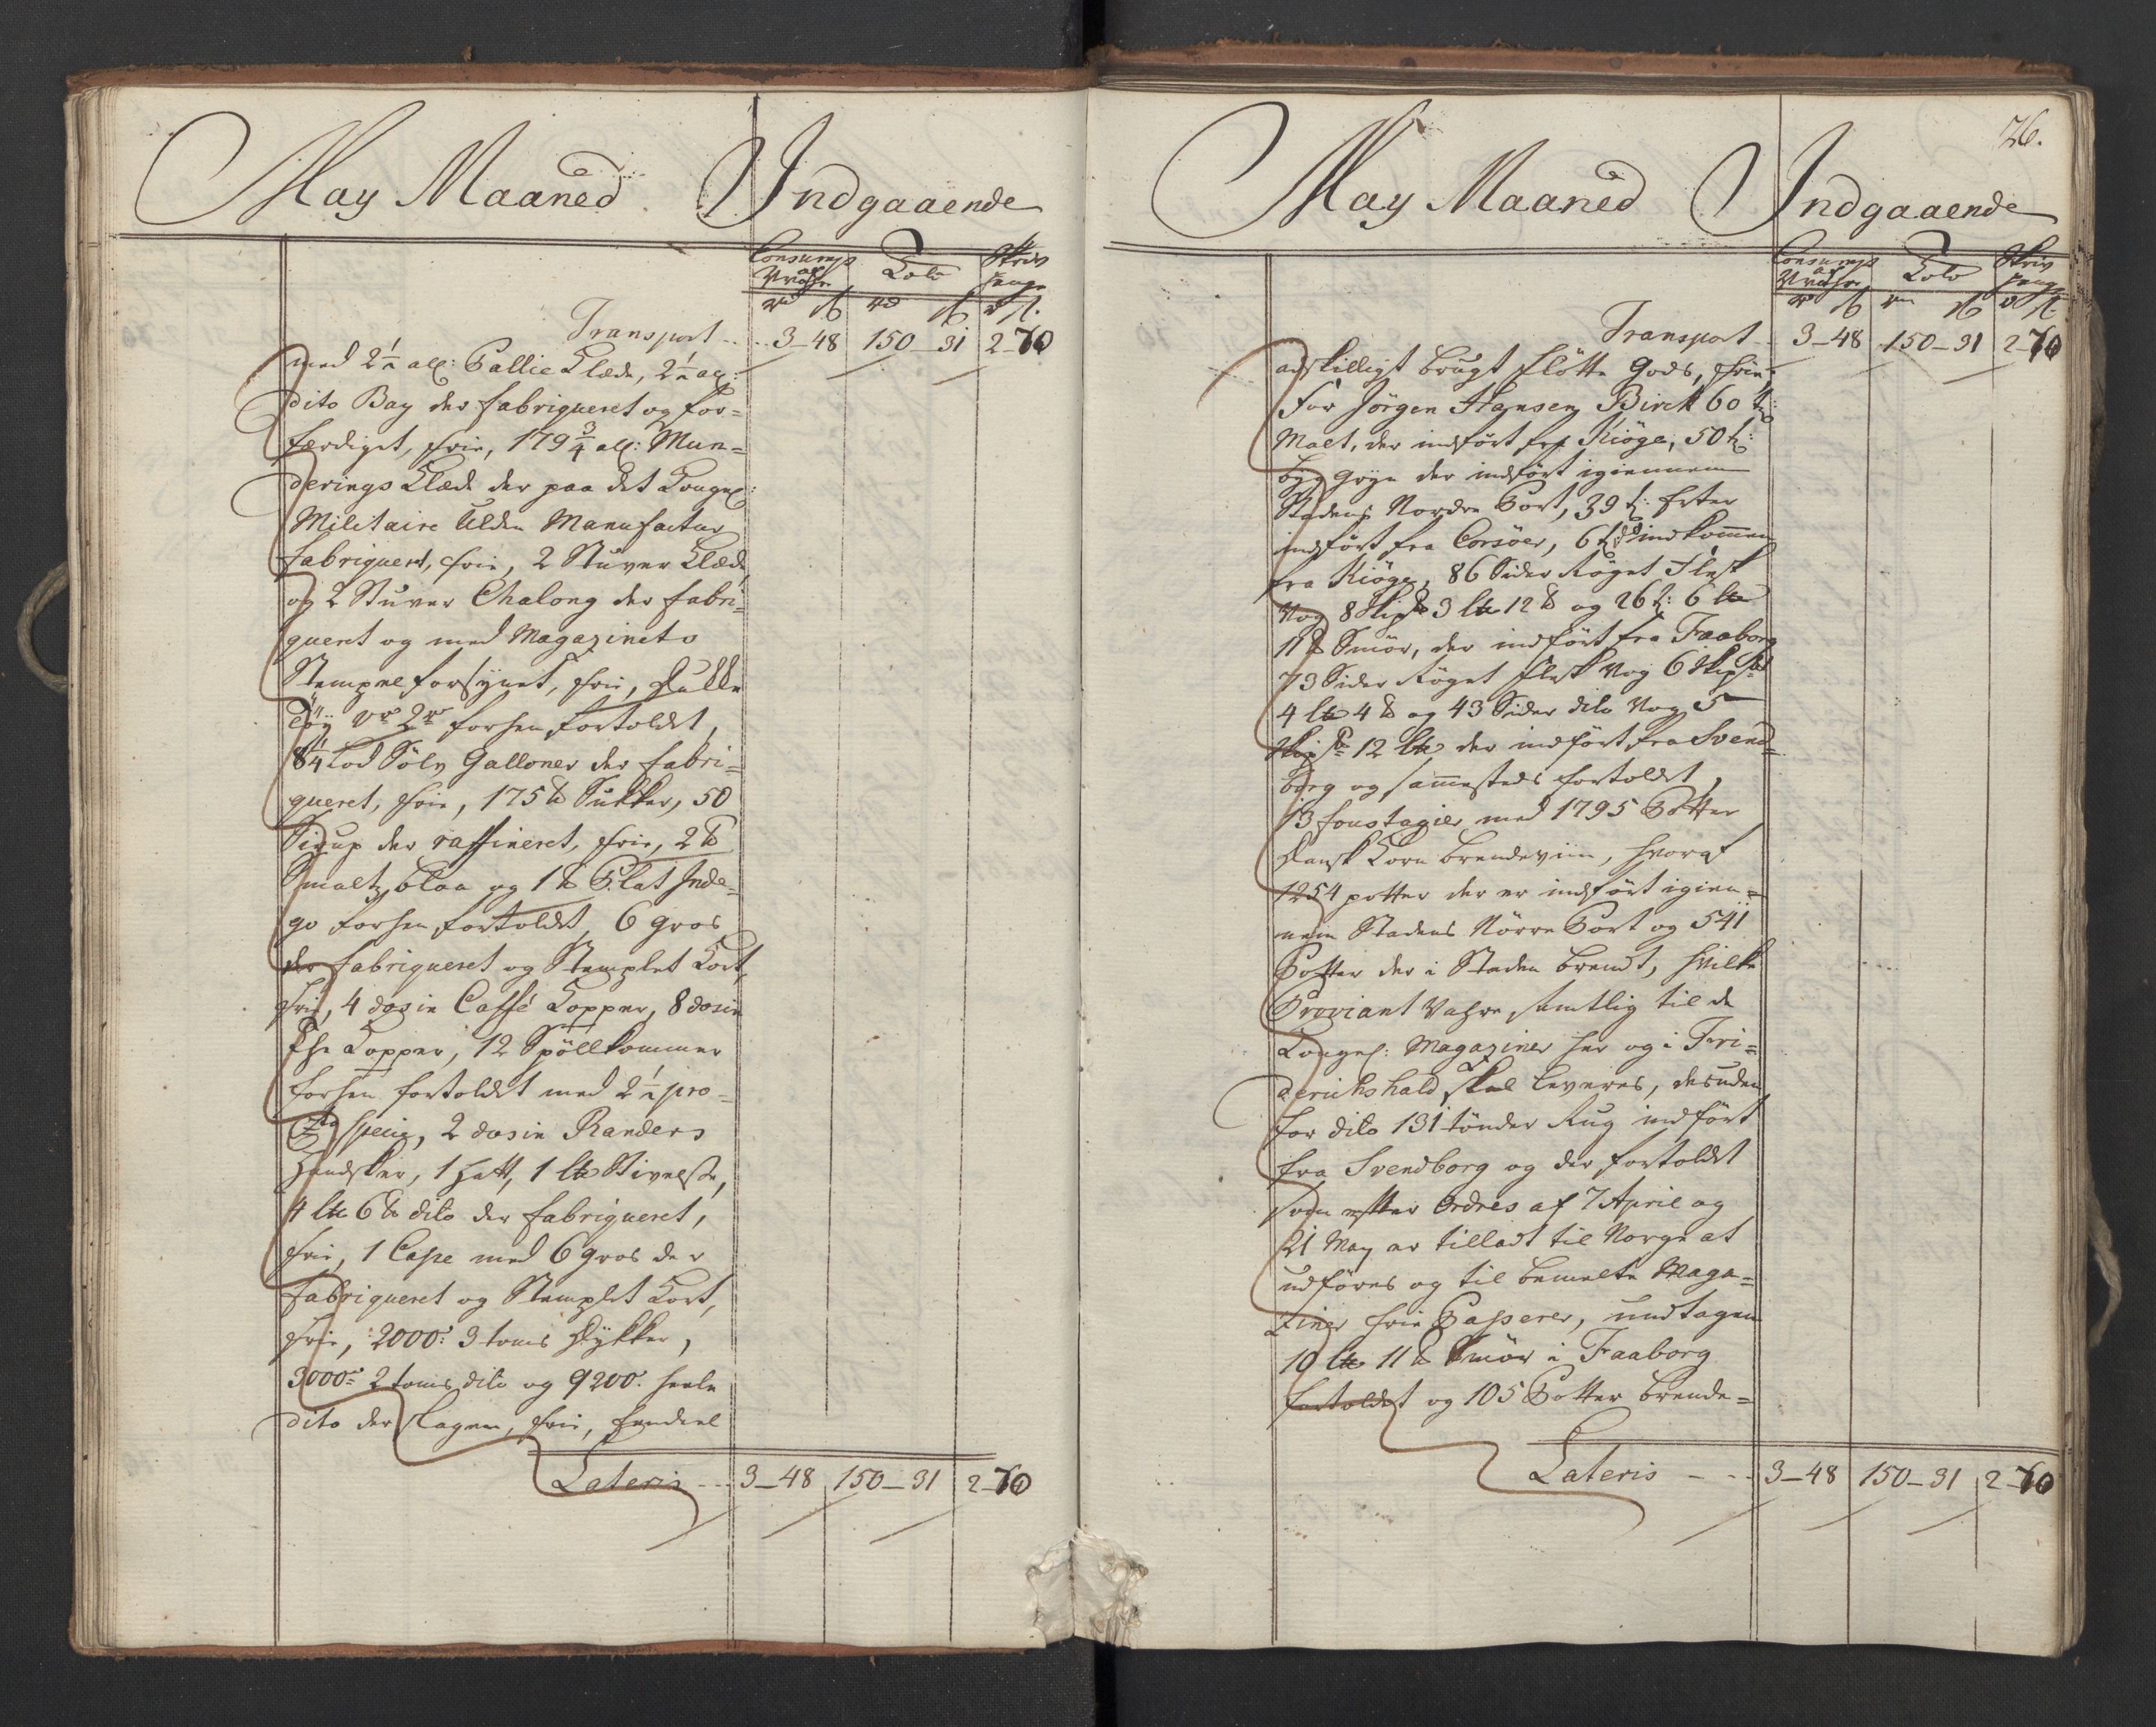 May Maaned Indgaaende
Consumps af Vrahr Told Skriv penge
rd ß rd ß rd ß
Transport 3-48 150-31 2-70
med 2½ all: Pallie Klæde, 2½ al:
dito Bay der fabriqueret og for=
færdiget, frie, 179¾ all: Mun=
derings Klæde der paa det Kongel:
Militaire Ulden Manufactur
fabriqueret, frie, 2 Stuver Klæde
og 2 Stuver Chalong der fabri=
queret og med Magazinets
Stempel forsynet, frie, Dukke
Töÿ forhen fortoldet,
8¼ Lod Sölv Galloner der fabri=
queret, frie, 175 ℔ Sukker, 50
Sirup der raffineret, frie, 2 ℔
Smaltz blaa og 1 ℔ Plat Inde=
go forhen fortoldet, 6 gros
der fabriqueret og Stemplet Kort,
frie, 4 dosin Caffé Kopper, 8 dosin
The Kopper, 12 Spöllkommer
forhen fortoldet med 2½ pro=
Cto specie, 2 dosin Randers
Handsker, 1 Hatt, 1 L℔ Stivelse,
4 L℔ 6 ℔ dito der fabriqueret,
frie, 1 Casse med 6 gros der
fabriqueret og Stemplet Kort,
frie, 2000: 3 toms Stykker,
3000: 2 toms dito og 9200: heele
dito der slagen, frie, hendeel
Lateris 3-48 150-31 2-70
26.
May Maaned Indgaaende
Consumps af Vrahr Told Skriv penge
rd ß rd ß rd ß
Transport 3-48 150-31 2-70
adskilligt brugt flötte Gods, frie
For Jörgen Hansen Birch 60 t:
Malt, der indfört fra Kiöge, 50 t:
byg gryn der indfört igiennem
Stadens Nordre Port, 39 t: Erter
indfört fra Corsöer, 6 t: do indkommen
fra Kiöge, 86 Sider Röget Flesk
Vog 8 Skip℔ 3 L℔ 12 ℔ og 26 t: 6 L℔
11 ℔ Smör, der indfört fra Faaborg
73 Sider Röget flesk Vog 6 Skip℔
4 L℔ 4 ℔ og 43 Sider dito Vog 5
Skip℔ 12 L℔ der indfört fra Svend=
borg og sammesteds fortoldet,
13 foustagier med 1795 Potter
Dansk Korn brendeviin, hvoraf
1254 potter der er indfört igien=
nem Stadens Nörre Port og 541
Potter der i Staden brendt, hvilke
Proviant Vahre samtlig til de
Kongel: Magaziner her og i Fri=
derichshald skal leveres, desuden
for dito 131 tönder Rug indfört
fra Svendborg og der fortoldet
som efter Ordres af 7 April og
21 May er tilladt til Norge at
udföres og til bemelte Maga=
ziner frie Passerer, undtagen
10 L℔ 11 ℔ Smör i Faaborg
fortoldet og 105 Potter brende=
Lateris 3-48 150-31 2-70